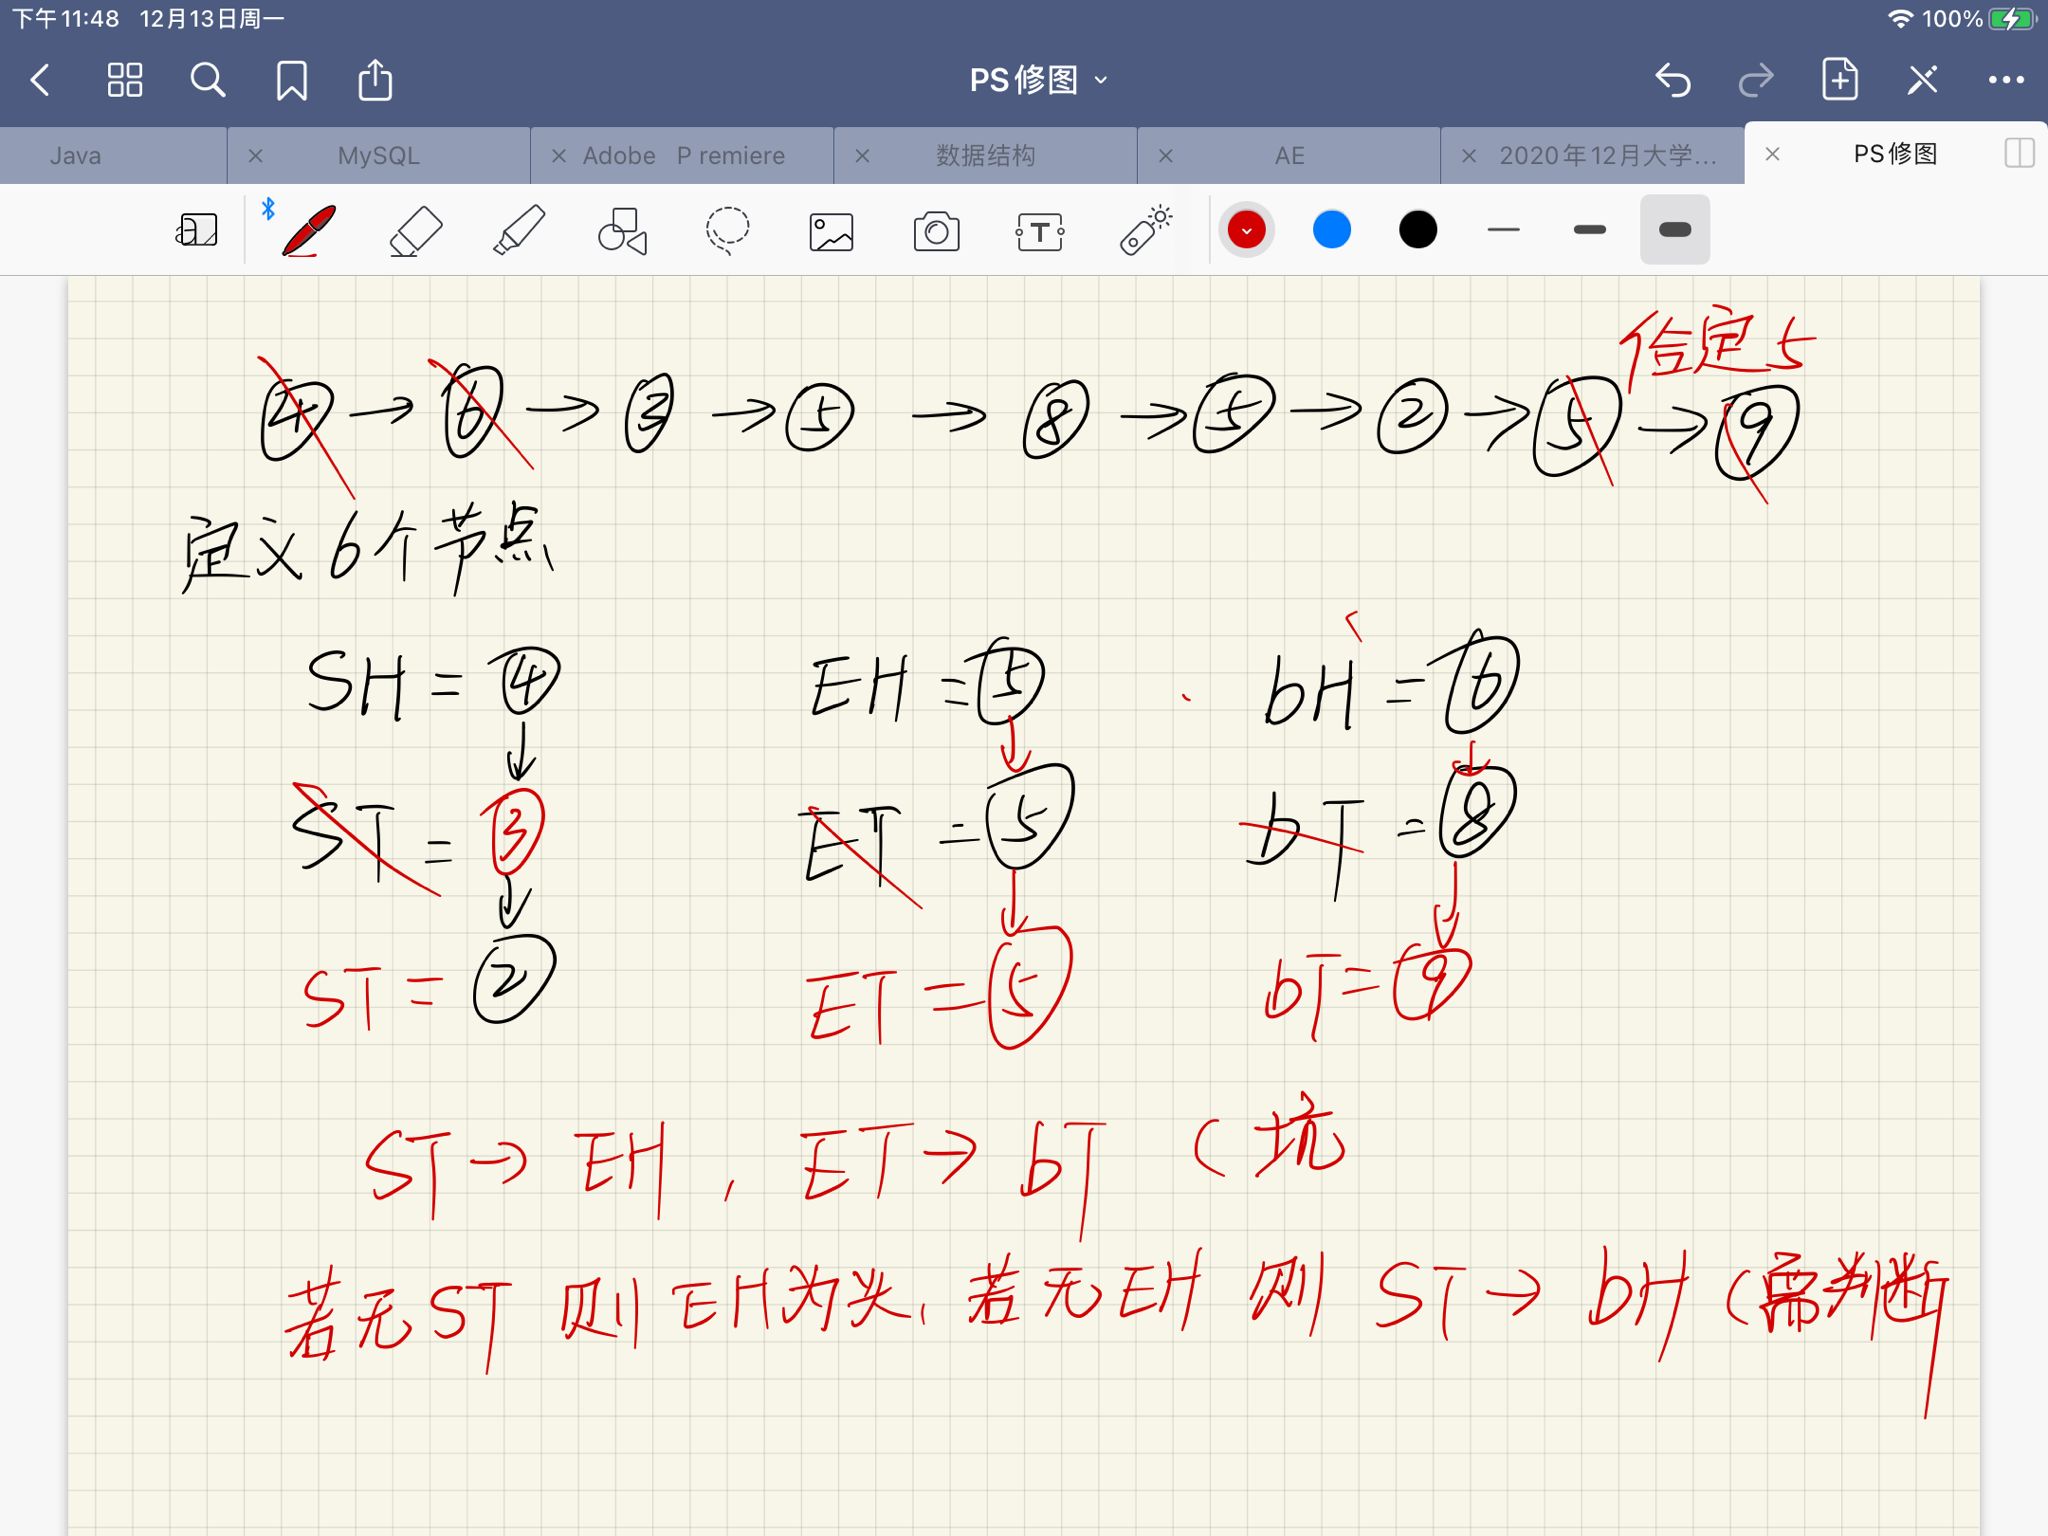 下午11:48 12月13日周一 100%
PS修图
Java MySQL Adobe P remiere 数据结构 AE 2020年12月大学... PS修图
给定5
4 → 6 → 3 → 5 → 8 → 5 → 2 → 5 → 9
定义6个节点
SH = 4 EH = 5 bH = 6
ST = 3 ET = 5 bT = 8
ST = 2 ET = 5 bT = 9
ST → EH , ET → bT (坑
若无ST 则 EH为头, 若无EH 则 ST → bH (需判断